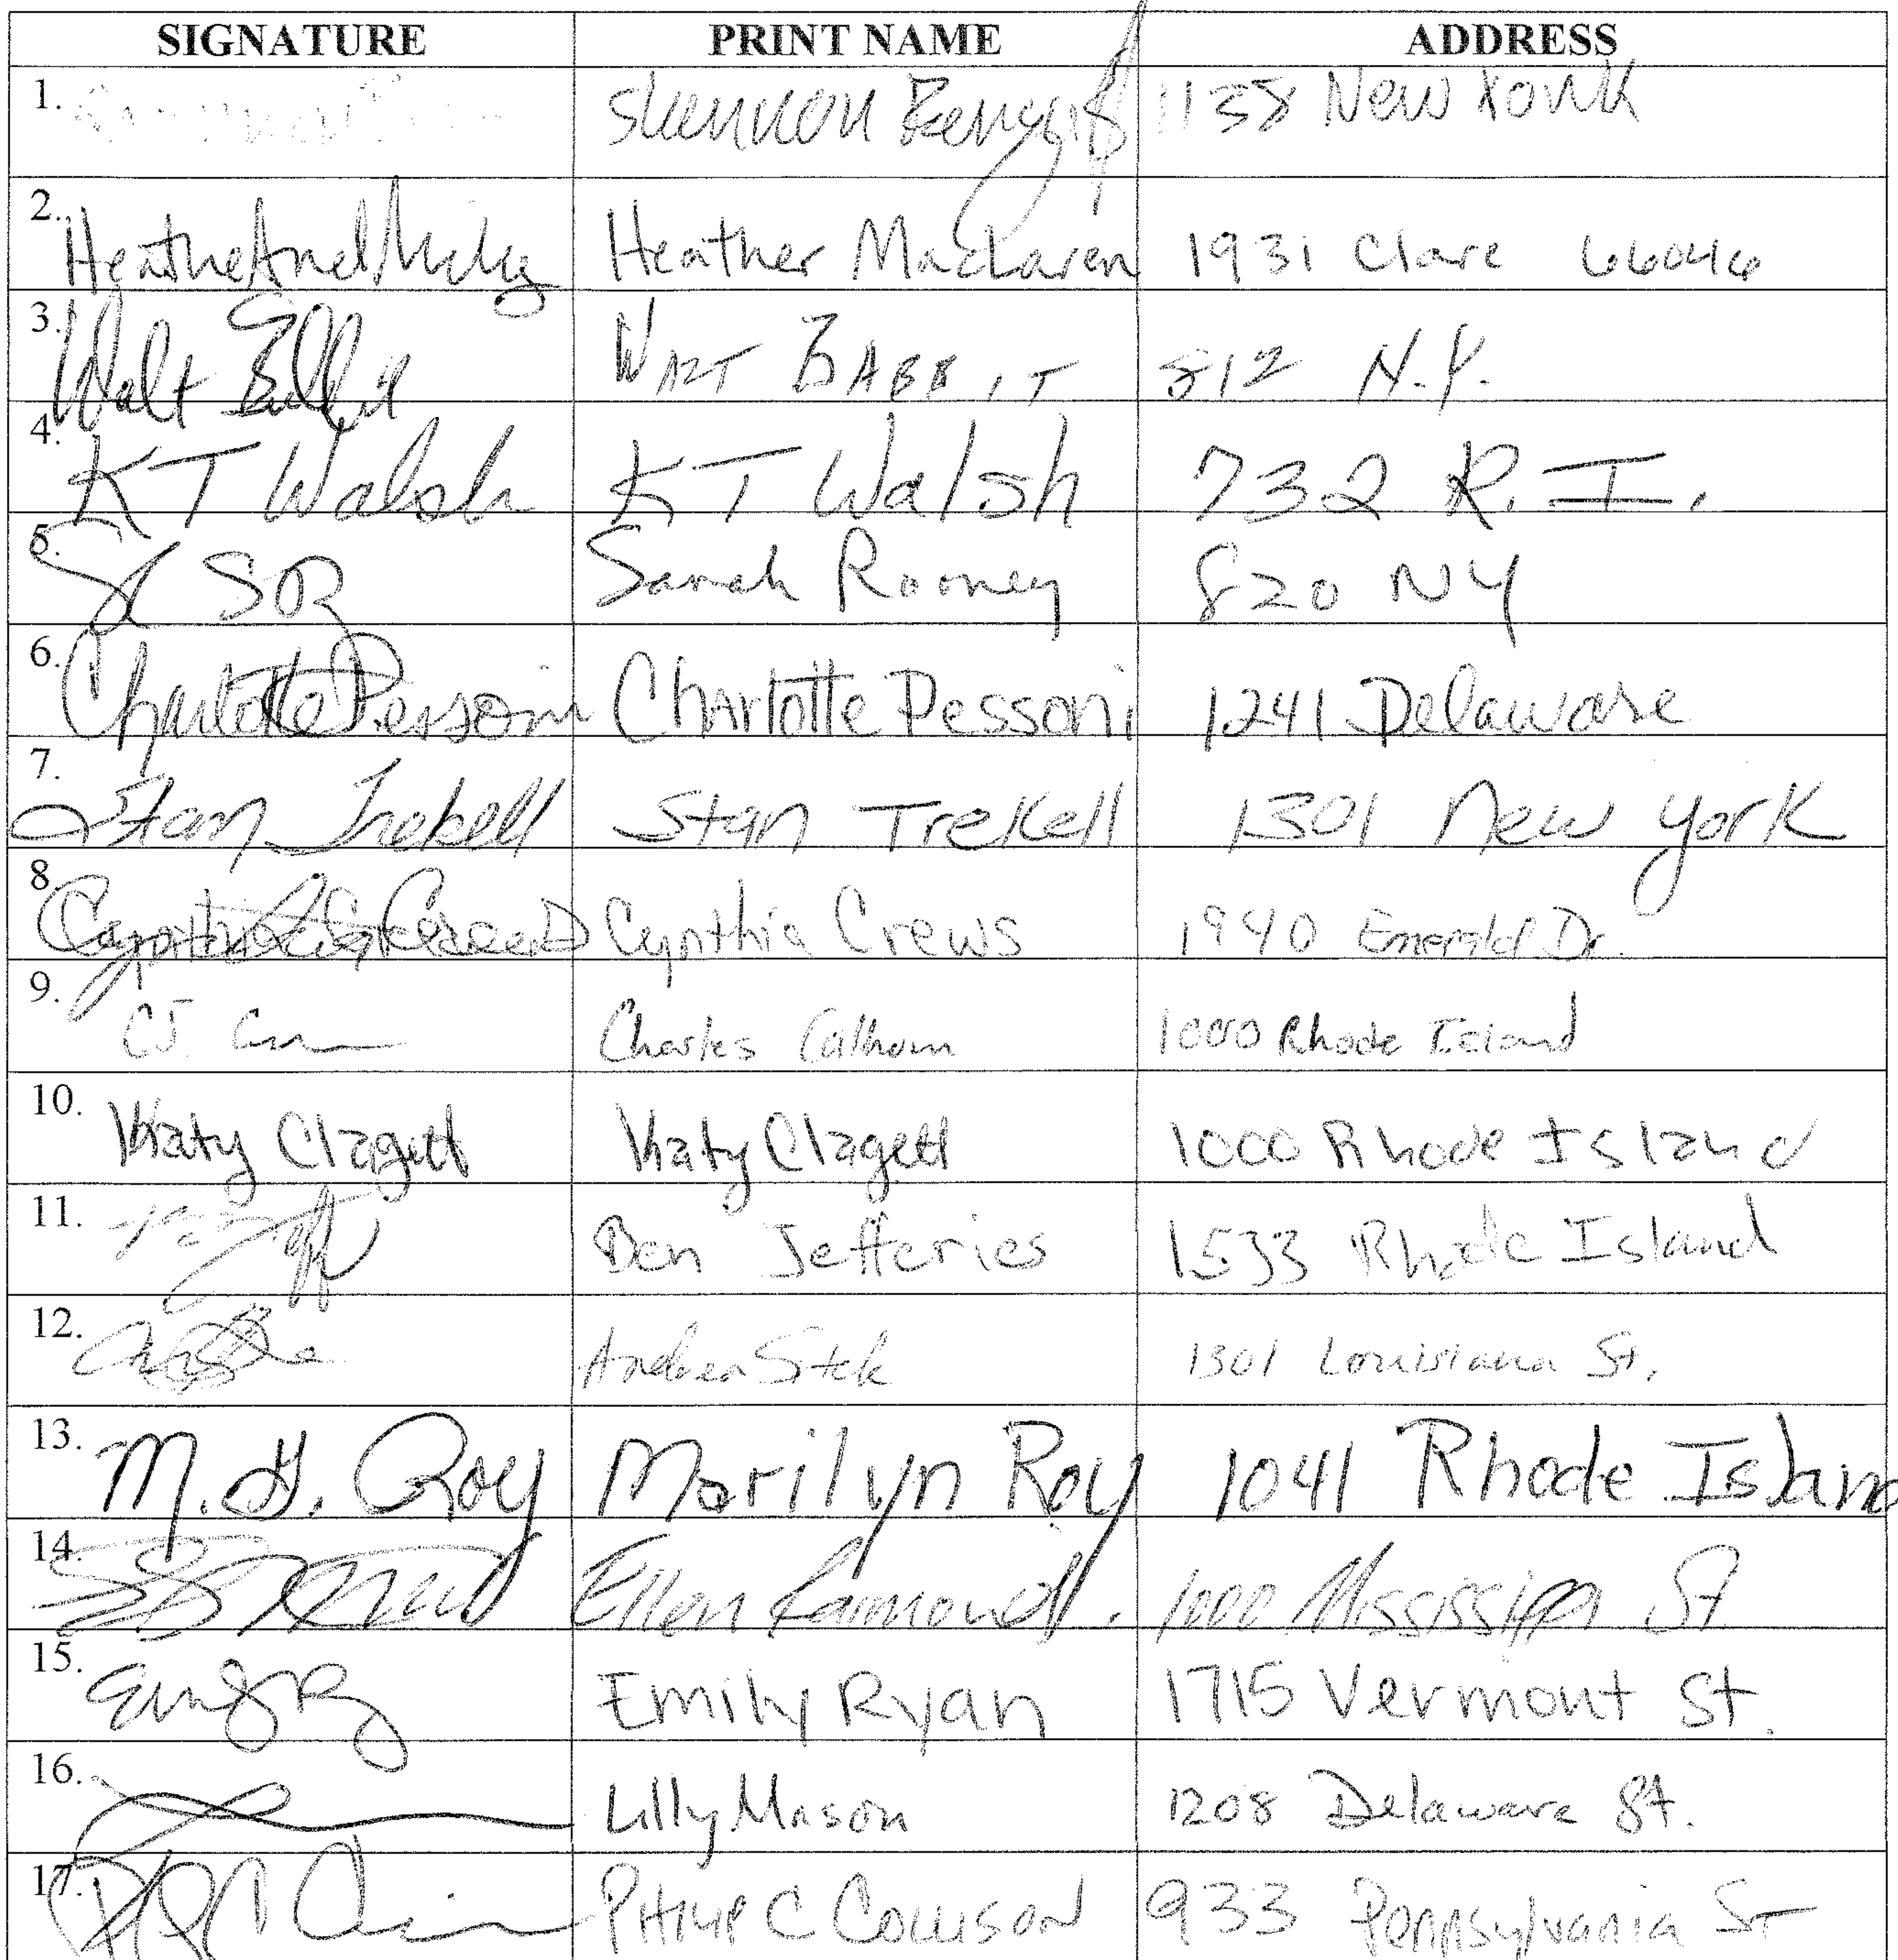 SIGNATURE PRINT NAME ADDRESS
1. Shannon 1138 New York
2. Heather MacLaren 1931 Clare 66046
3. Walt Babbit WALT BABBIT 812 N.Y.
4. KT Walsh KT Walsh 732 R.I.
5. Sarah Rooney 820 NY
6. Charlotte Pessoni Charlotte Pessoni 1241 Delaware
7. Stan Trekell Stan Trekell 1301 New York
8. Cynthia Crews 1940 Emerald Dr.
9. CJ Charles Calhoun 1000 Rhode Island
10. Katy Clagett Katy Clagett 1000 Rhode Island
11. Ben Jefferies 1533 Rhode Island
12. Andrea 1301 Louisiana St.
13. M. G. Roy Marilyn Roy 1041 Rhode Island
14. Ellen 1000 Mississippi St
15. Emily Ryan 1715 Vermont St.
16. Lilly Mason 1208 Delaware St.
17. PHILIP C COLLISON 933 Pennsylvania St